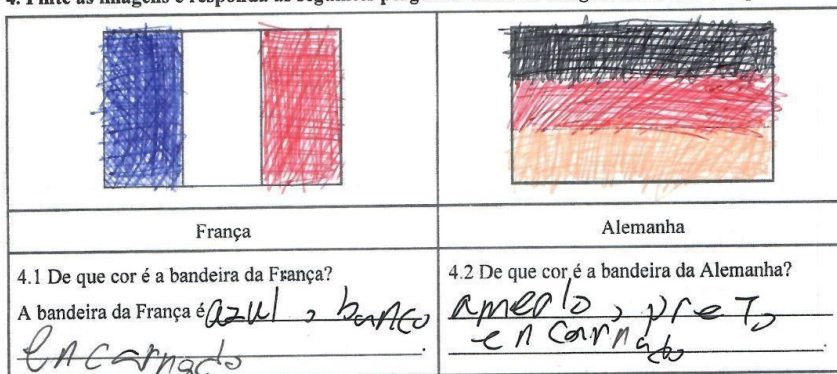 França
Alemanha
4.1 De que cor é a bandeira da França?
A bandeira da França é azul, banco
encarnado.
4.2 De que cor é a bandeira da Alemanha?
ameolo, preto
encarnado.